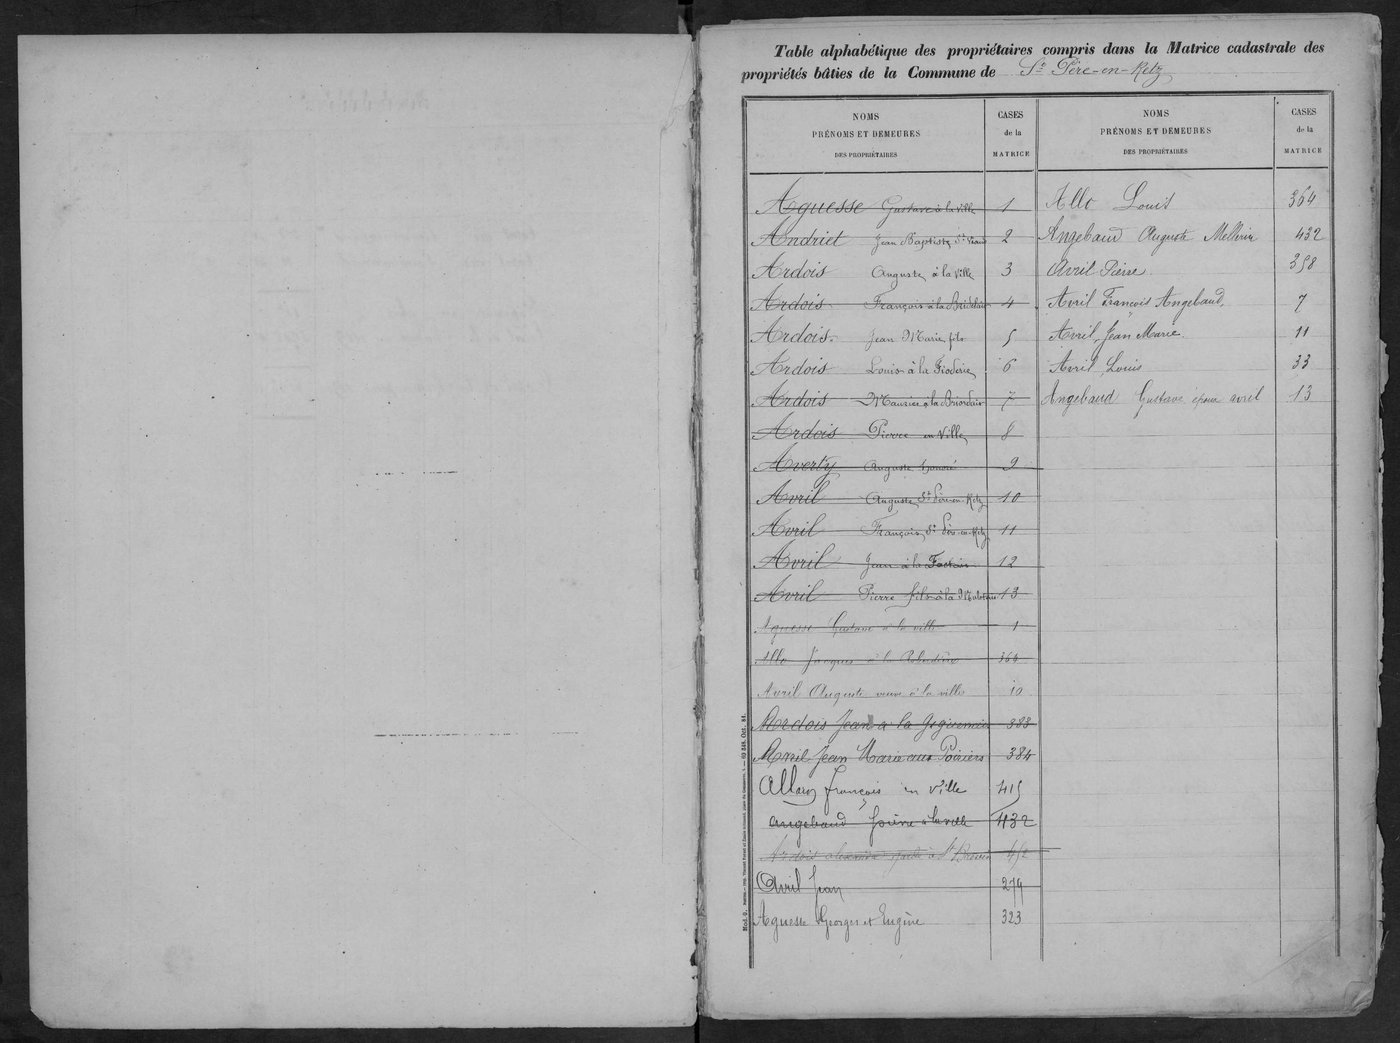 Table alphabétique des propriétaires compris dans la Matrice cadastrale des
propriétés bâties de la Commune de St Père-en-Retz
NOMS
PRÉNOMS ET DEMEURES
DES PROPRIÉTAIRES
CASES
de la
MATRICE
Aguesse Gustave à la ville 1
Andriet Jean Baptiste St Viaud 2
Ardois Auguste à la Ville 3
Ardois François à la 4
Ardois Jean Marie fils 5
Ardois Louis à la 6
Ardois Maurice à la 7
Ardois Pierre en Ville 8
Averty Auguste 9
Avril Auguste St Père-en-Retz 10
Avril François St Père-en-Retz 11
Avril Jean à la 12
Avril Pierre fils à la 13
Aguesse Gustave à la ville 1
Allo Jacques à la 364
Avril Auguste veuve à la ville 10
Ardois Jean à la 383
Avril Jean Marie aux Poiriers 384
Allary François en Ville 415
Angebaud Pierre à la ville 432
Ardois à St 452
Avril Jean 279
Aguesse Georges et Eugène 323
NOMS
PRÉNOMS ET DEMEURES
DES PROPRIÉTAIRES
CASES
de la
MATRICE
Allo Louis 364
Angebaud Auguste Mellerin 432
Avril Pierre 358
Avril François Angebaud 7
Avril Jean Marie 11
Avril Louis 33
Angebaud Gustave époux avril 13